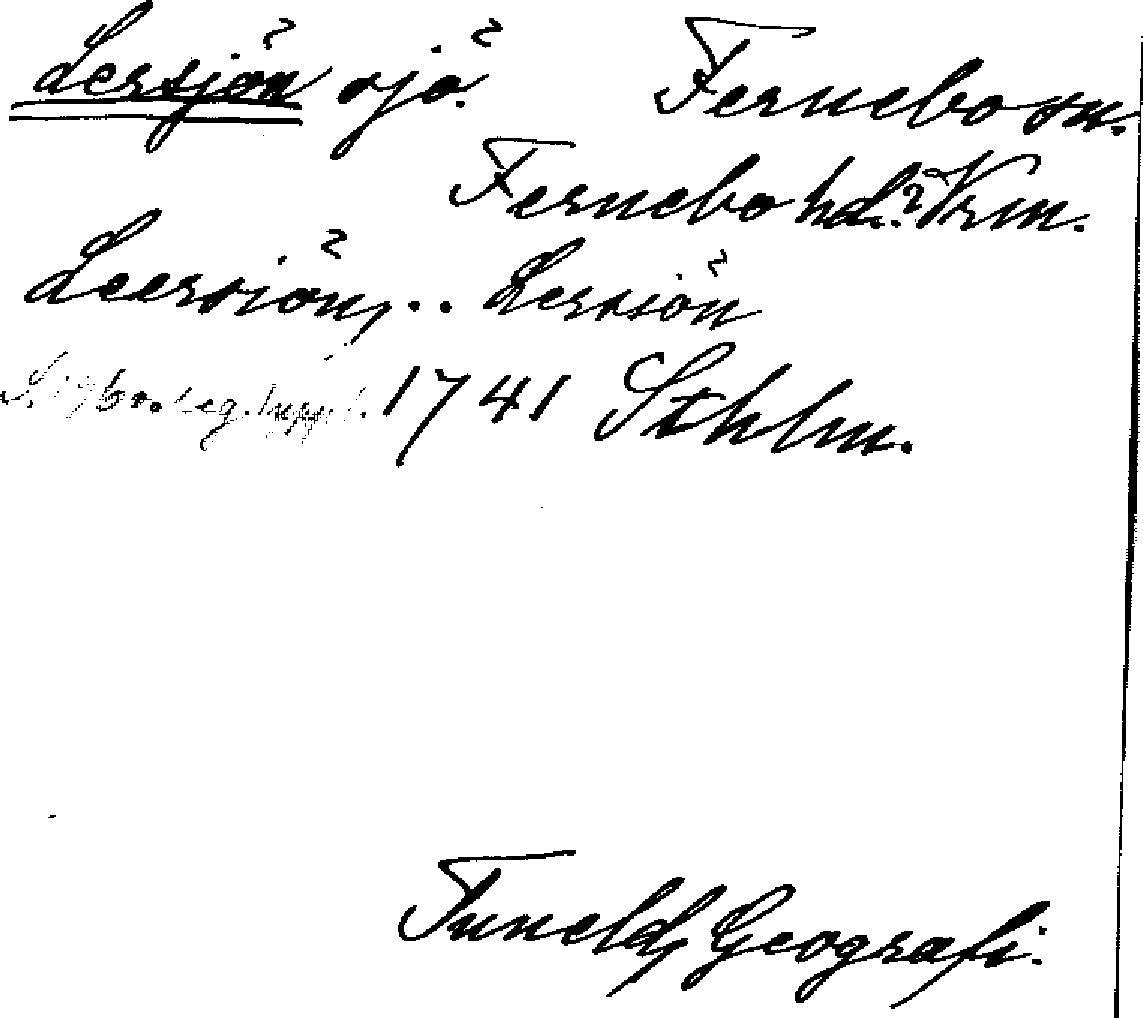 Lersjön sjö. Fernebo sn.
Fernebo hd. Vrm.
Leersiön, .. Lersiön
S. 196 o. 1741 Sthlm.
Tuneld, Geografi.